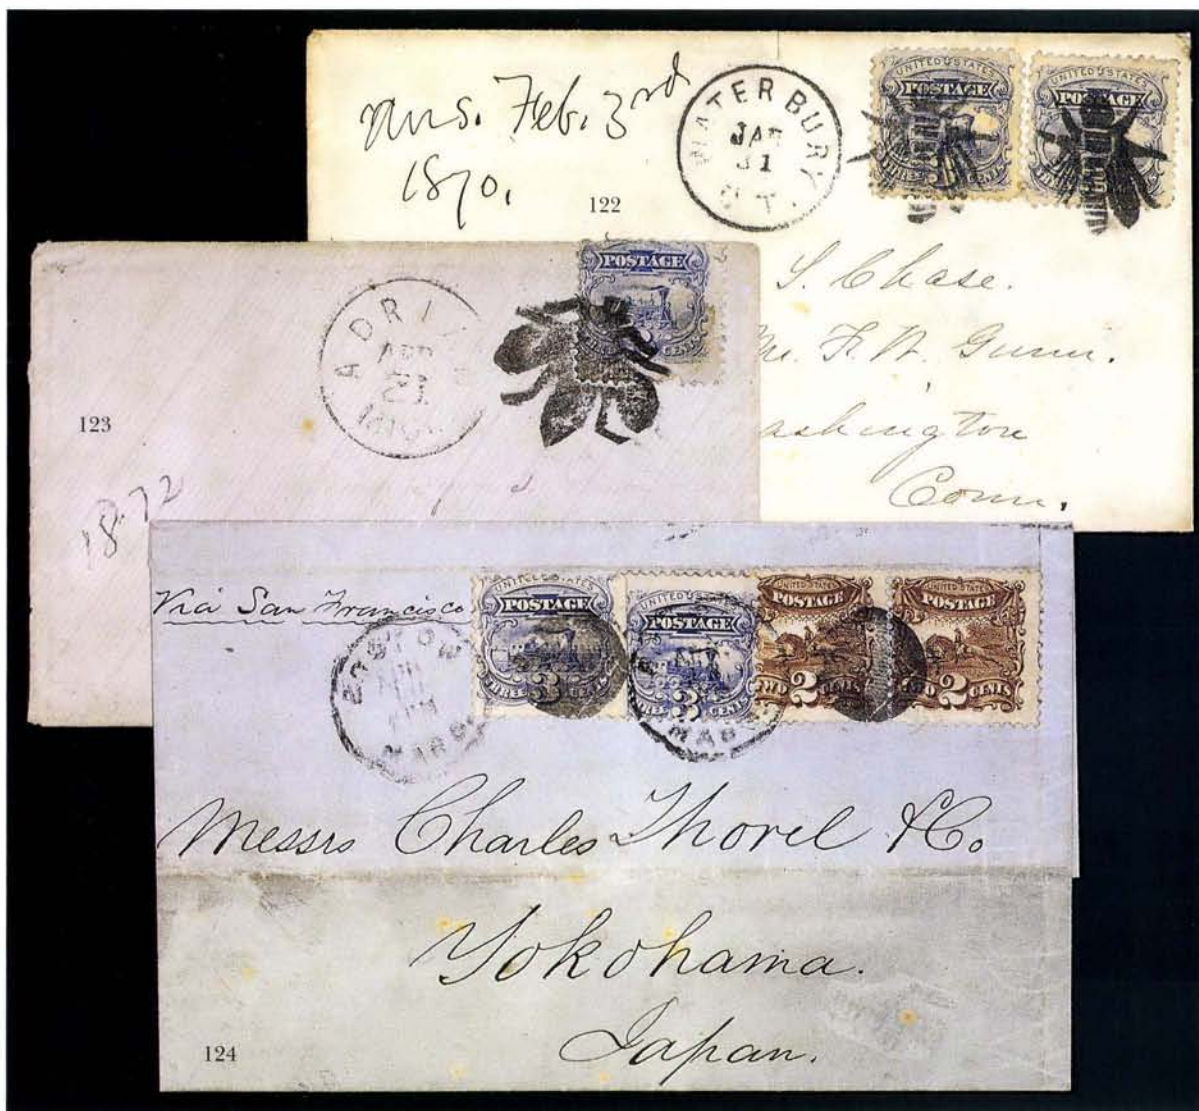 Ans. Feb. 3rd
1870.
122
WATERBURY
JAN
31
CT.
UNITED STATES
POSTAGE
THREE 3 CENTS
UNITED STATES
POSTAGE
S. Chase.
F. W. Gunn.
ashington
Conn.
123
ADRIAN
APR
21
MICH.
POSTAGE
CENTS
1872
Via San Francisco
BOSTON
MASS.
UNITED STATES
POSTAGE
THREE 3 CENTS
UNITED STATES
POSTAGE
THREE 3 CENTS
MASS
UNITED STATES
POSTAGE
TWO 2 CENTS
UNITED STATES
POSTAGE
TWO 2 CENTS
Messrs Charles Thorel & Co.
Yokohama.
Japan.
124